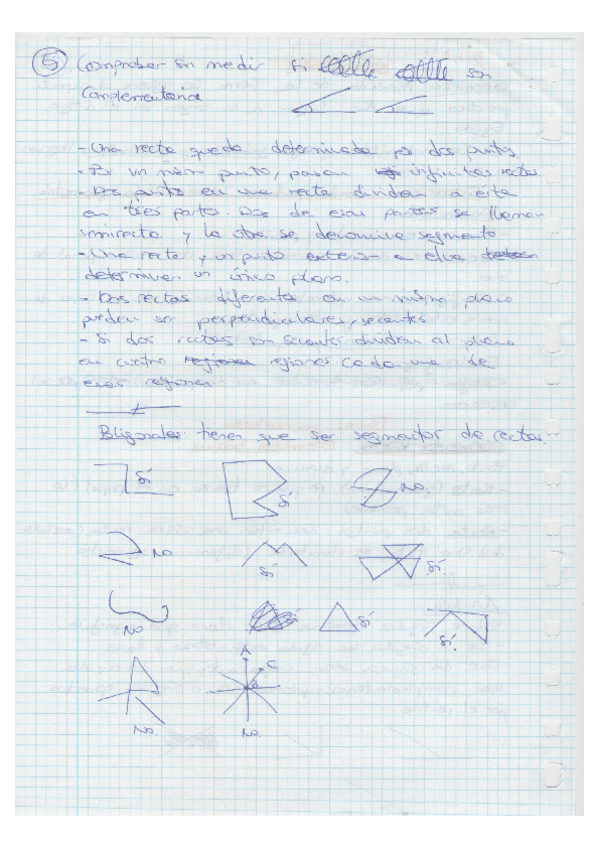 5 Comprobar sin medir si son
Complementarios
- Una recta queda determinada por dos puntos.
- Por un mismo punto, pasan infinitas rectas.
- Dos puntos en una recta dividen a ésta
en tres partes Dos de esas partes se llaman
semirecta y la otra se denomina segmento
- Una recta y un punto exterior a ella
determinan un único plano.
- Dos rectas diferentes en un mismo plano
pueden ser perpendiculares, secantes
- Si dos rectas son secantes dividen al plano
en cuatro regiones Cada una de
esas regiones
tienen que ser segmentos de rectas.
Sí Sí No
No Sí Sí.
No Sí Sí.
A
C
No. No.